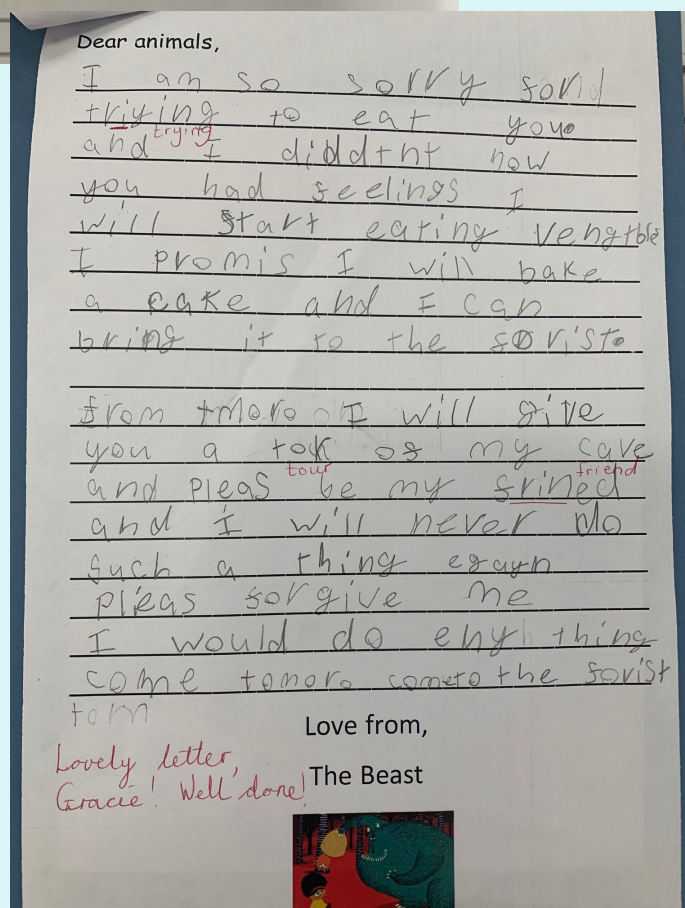 Dear animals,
I am so sorry ford
triying to eat you
trying
and I diddtnt now
you had feelings I
will start eating vengtble
I promis I will bake
a cake and I can
bring it to the forist
from tmoro I will give
you a tok of my cave
tour friend
and pleas be my frined
and I will never do
such a thing egayn
pleas forgive me
I would do enyh thing
come tomoro cometo the forist
tom
Love from,
Lovely letter,
Gracie! Well done!
The Beast